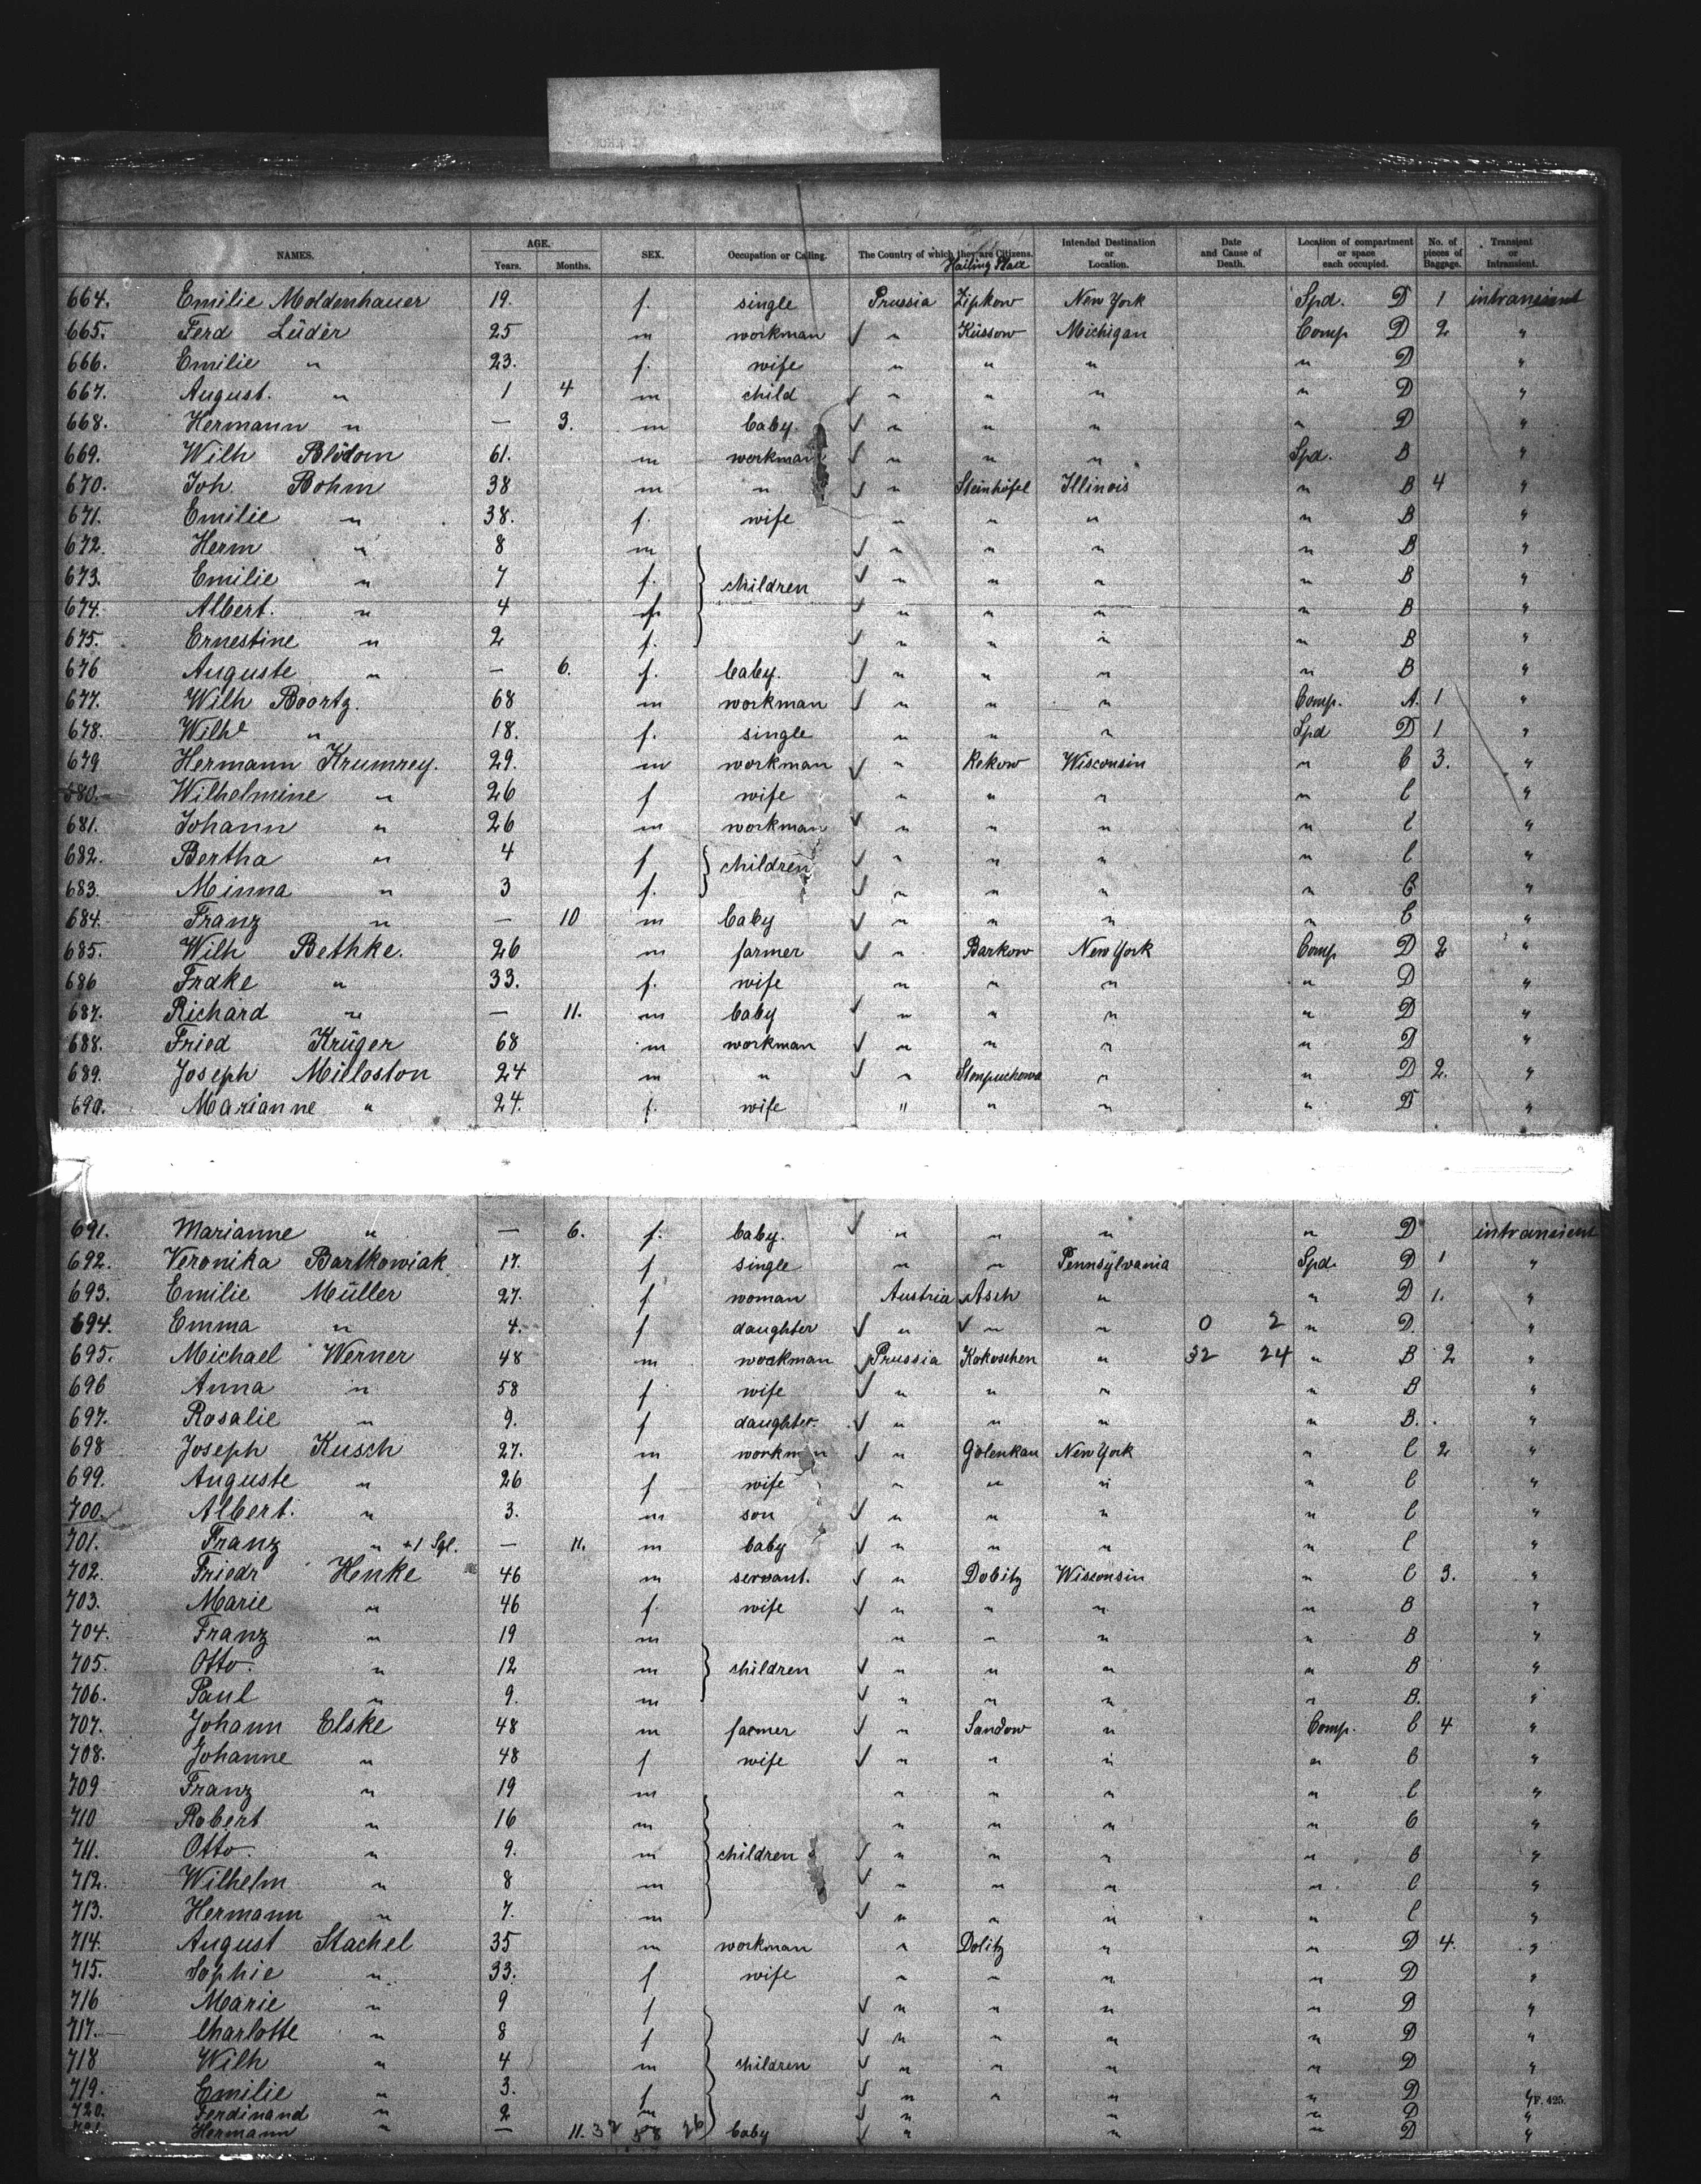 NAMES. AGE. Years. Months. SEX. Occupation or Calling. The Country of which they are Citizens. Hailing Place Intended Destination or Location. Date and Cause of Death. Location of compartment or space each occupied. No. of pieces of Baggage. Transient or Intransient.
664. Emilie Moldenhauer 19. f. single Prussia Zipkow New York Spd. D 1 intransient
665. Ferd Lüder 25 m workman ✓ " Küssow Michigan Comp D 2 "
666. Emilie " 23. f. wife " " " " D "
667. August. " 1 4 m child ✓ " " " " D "
668. Hermann " — 3. m baby. ✓ " " " " D "
669. Wilh Blödorn 61. m workman ✓ " " " Spd. B "
670. Joh. Bohm 38 m " ✓ " Steinhöfel Illinois " B 4 "
671. Emilie " 38. f. wife " " " " B "
672. Herm " 8 m ✓ " " " " B "
673. Emilie " 7 f. children ✓ " " " " B "
674. Albert. " 4 ✓ " " " " B "
675. Ernestine " 2 f. ✓ " " " " B "
676 Auguste " — 6. f. baby. ✓ " " " " B "
677. Wilh Boortz. 68 m workman ✓ " " " Comp. A. 1 "
678. Wilhe " 18. f. single " " " Spd D 1 "
679 Hermann Krumrey. 29. m workman ✓ " Rekow Wisconsin " C 3. "
680. Wilhelmine " 26 f wife " " " " C "
681. Johann " 26 m workman ✓ " " " " C "
682. Bertha " 4 f children ✓ " " " " C "
683. Minna " 3 f. ✓ " " " " C "
684. Franz " — 10 m baby ✓ " " " " C "
685. Wilh Bethke. 26 m farmer ✓ " Barkow New York Comp D 2 "
686 Frdke " 33. f. wife " " " " D "
687. Richard " — 11. m baby ✓ " " " " D "
688. Fried Krüger 68 m workman ✓ " " " " D "
689. Joseph Milloston 24 m " ✓ " Stenpuchowo " " D 2. "
690. Marianne " 24. f. wife " " " " D "
691. Marianne " — 6. f. baby. ✓ " " " " D intransient
692. Veronika Bartkowiak 17. f single " " Pennsylvania Spd. D 1 "
693. Emilie Müller 27. f woman Austria Asch " " D 1. "
694. Emma " 4. f daughter ✓ " ✓ " " 0 2 " D. "
695. Michael Werner 48 m workman ✓ Prussia Kokoschen " 32 24 " B 2 "
696 Anna " 58 f wife ✓ " " " " B "
697. Rosalie " 9. f daughter. ✓ " " " " B. "
698 Joseph Kusch 27. m workman ✓ " Golenkau New York " C 2 "
699. Auguste " 26 f wife " " " " C "
700. Albert. " 3. m son ✓ " " " " C "
701. Franz " +1 Sgl. — 11. m baby ✓ " " " " C "
702. Friedr Henke 46 m servant. ✓ " Dobitz Wisconsin " C 3. "
703. Marie " 46 f. wife ✓ " " " " B "
704. Franz " 19 m " " " " B "
705. Otto. " 12 m children ✓ " " " " B "
706. Paul " 9. m ✓ " " " " B. "
707. Johann Elske 48 m farmer ✓ " Sandow " Comp. C 4 "
708. Johanne " 48 f wife ✓ " " " " C "
709 Franz " 19 m " " " " C "
710 Robert " 16 m " " " " C "
711. Otto. " 9. m children ✓ " " " " C "
712. Wilhelm " 8 m ✓ " " " " C "
713. Hermann " 7. m ✓ " " " " C "
714. August Stachel 35 m workman " Dolitz " " D 4. "
715. Sophie " 33. f wife " " " " D "
716 Marie " 9 f ✓ " " " " D "
717. Charlotte " 8 f ✓ " " " " D "
718 Wilh " 4 m children ✓ " " " " D "
719. Emilie " 3. f ✓ " " " " D " F. 425.
720. Ferdinand " 2 m ✓ " " " D "
Hermann " — 11. 32 58 26 baby ✓ " " " D "